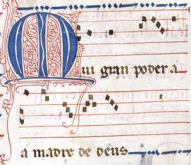 Mui gran poder á
a madre de deus